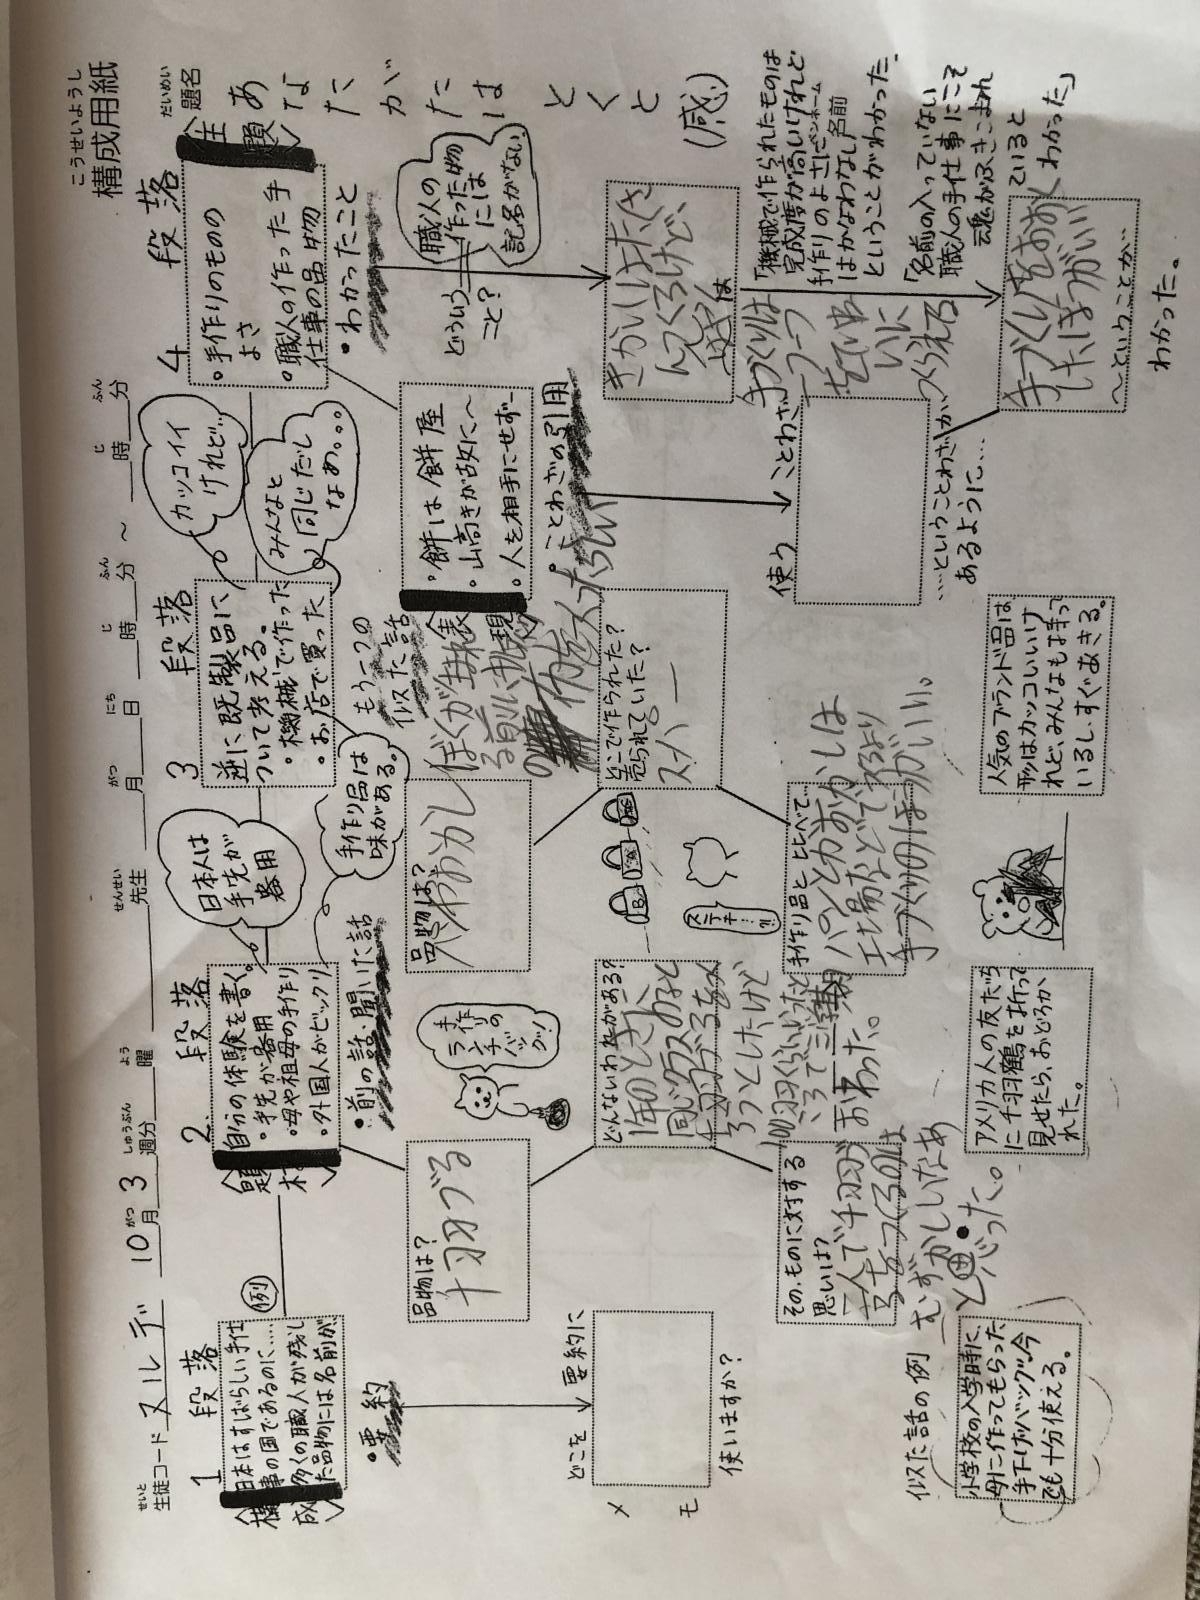 こうせいようし
構成用紙
せいと
生徒コード ヌルデ
10月3週
がつ しゅうぶん よう せんせい がつ にち じ ふん じ ふん
分 曜 先生 月 日 時 分 ～ 時 分
だいめい
題名 あなたがたはとくと(感)
1段落
構成
日本はすばらしい手仕
事の国であるのに……
多くの職人が残し
た品物には名前が
例
・要約
どこを
要約に
使いますか?
メモ
似た話の例
小学校の入学時に、
母に作ってもらった
手下げバッグ。今
でも十分使える。
2.段落
題材
自分の体験を書く。
・手先が器用
・母や祖母の手作り
・外国人がビックリ
日本人は
手先が
器用
手作り品は
味がある。
・前の話・聞いた話
品物は?
千羽づる
手作りの
ランチ
バッグ!
どんないわれがある?
1年のとき人
同じクラスのみんなと
千羽づるを
ろうとしたけど
100羽くらいったと
ころで三学期
おわった。
その、ものに対する
思いは?
三人で千羽づ
るをつくるのは
むずかしいなあ
と思った。
アメリカ人の友だち
に千羽鶴を折って
見せたら、おどろか
れた。
3段落
逆に既製品に
ついて考える。
・機械で作った
・お店で買った
カッコイイ
けれど…
みんなと
同じだし
なぁ。。。
もう一つの
似た話
品物は?
おかし
ぼくが毎
どこで作られた?
売られていた?
スーパー
ステキ…!!
手作り品とくらべて…
パンとかおかしは
工場などで
手づくりのほうがいい。
人気のブランド品は
形はカッコいいけ
れど、みんなも持って
いるし、すぐあきる。
4段落
主題
・手作りのものの
よさ
・職人の作った手
仕事の品物
・わかったこと
どういう
こと?
職人の
作った物
には
記名がない
表現
・餅は餅屋
・山高きが故に～
・人を相手にせず―
・ことわざの引用
使う ことわざ
…ということわざが、
あるように…
きかいはたくさ
んつくるけど、
手づくりは
一つ一つ
ていねいに
つくえる
「機械で作られたものは
完成度が高いけれど
手作りのよさにペンネーム
はかなわなし名前
ということがわかった。
「名前の入っていない
職人の手仕事にこそ
魂がふきこまれ
ていると
わかった」
手づくりをおおく
したほうがいい
～ということが…
わかった。